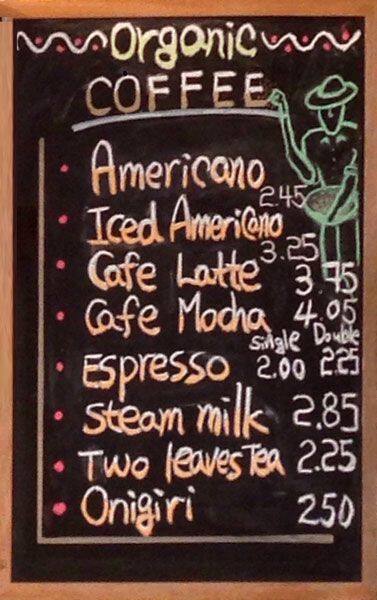 Organic
COFFEE
Americano 2.45
Iced Americano 3.25
Cafe Latte 3.75
Cafe Mocha 4.05
Single Double
Espresso 2.00 2.25
Steam milk 2.85
Two leaves Tea 2.25
Onigiri 250